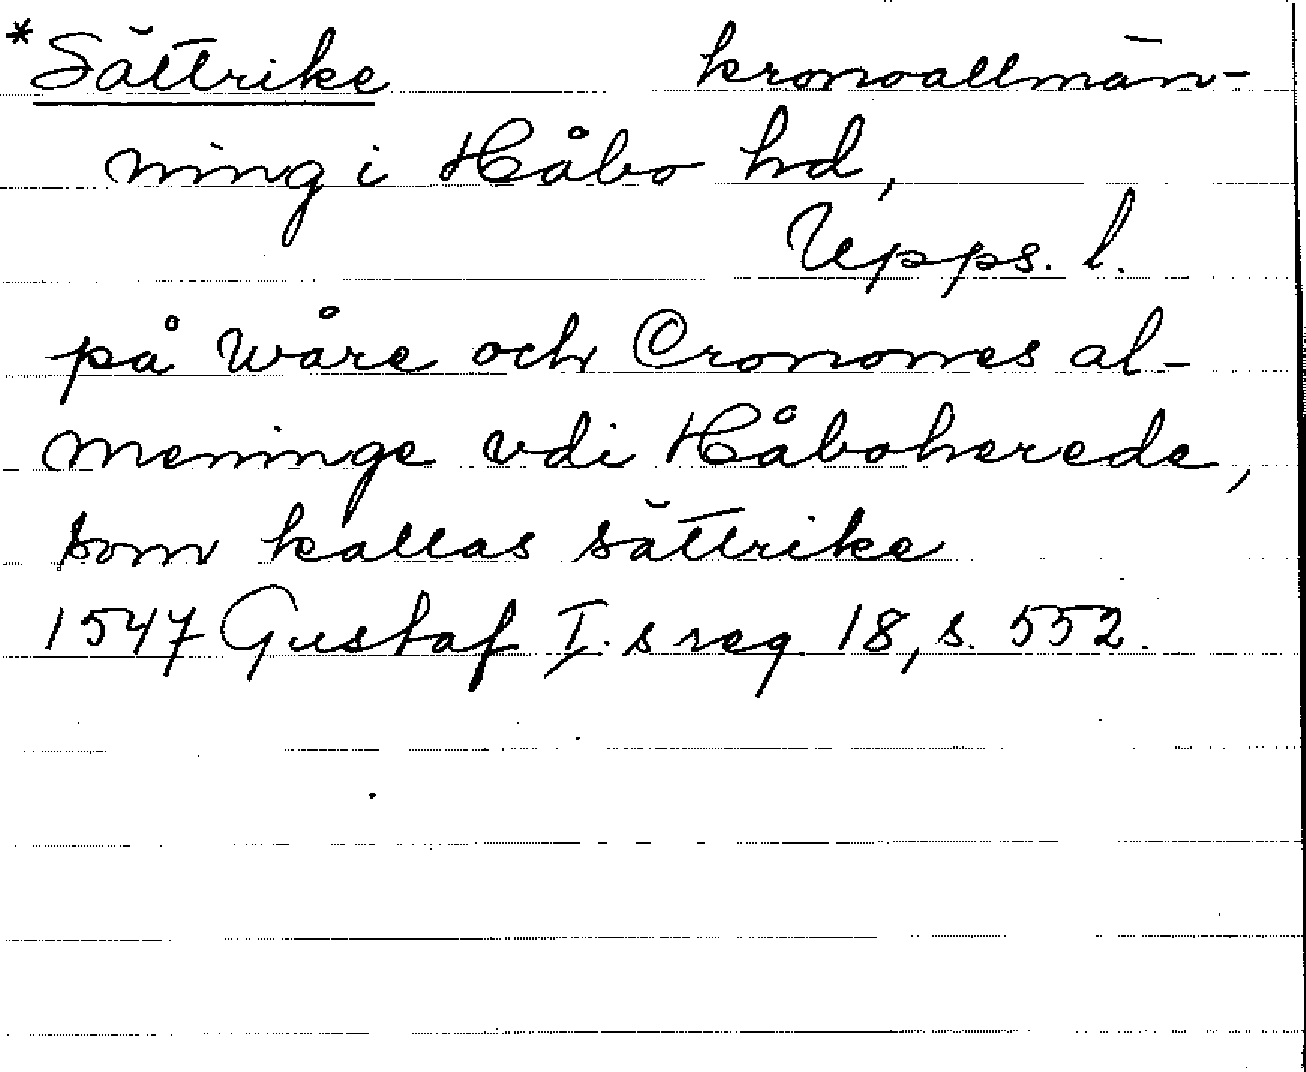 *Sättrike kronoallmän-
ning i Håbo hd,
Upps. l.
på wåre och Cronones al-
meninge vdi Håboherede,
som kallas sättrike
1547 Gustaf I:s reg. 18, s. 552.